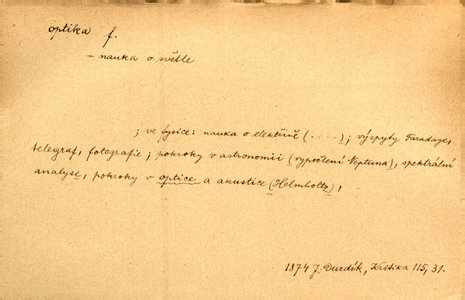 optika f.
- nauka o světle
; ve fysice: nauka o elektřině (.....); výzpyty Faradaye,
telegraf, fotografie; pokroky v astronomii (vypočtení Neptuna), spektrální
analyse, pokroky v optice a akustice (Helmholtz),
1874 J. Durdík, Kritika 115, 31.